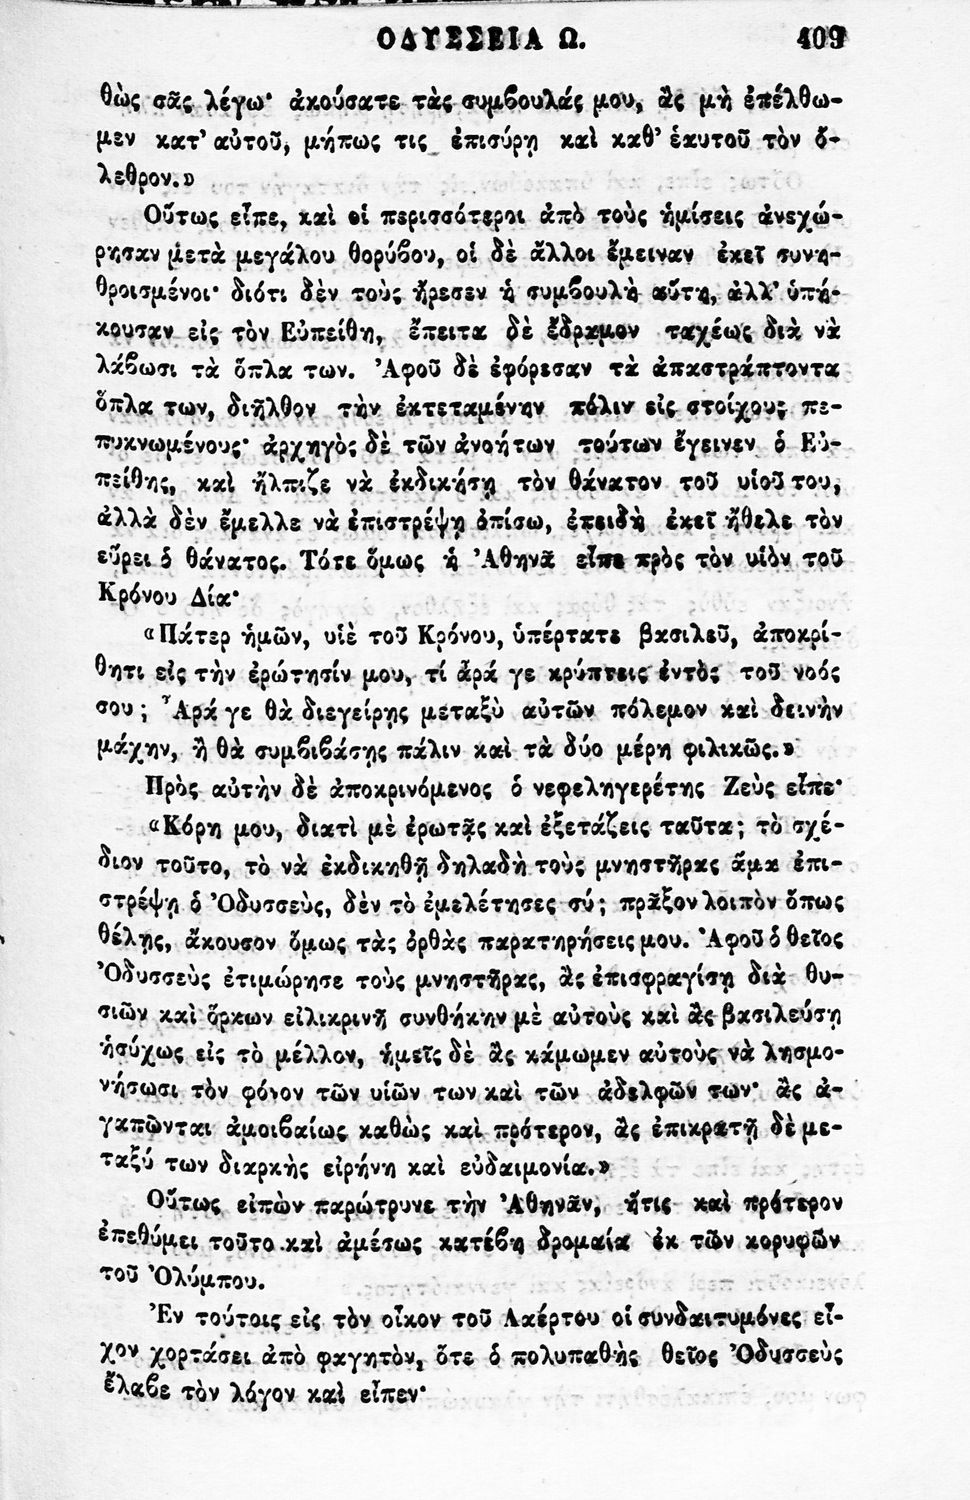 ΟΔΥΣΣΕΙΑ Ω. 409
θὼς σᾶς λέγω· ἀκούσατε τὰς συμβουλάς μου, ἂς μὴ ἐπέλθω-
μεν κατ' αὐτοῦ, μήπως τις ἐπισύρῃ καὶ καθ' ἑαυτοῦ τὸν ὄ-
λεθρον.»
Οὕτως εἶπε, καὶ οἱ περισσότεροι ἀπὸ τοὺς ἡμίσεις ἀνεχώ-
ρησαν μετὰ μεγάλου θορύβου, οἱ δὲ ἄλλοι ἔμειναν ἐκεῖ συνη-
θροισμένοι· διότι δὲν τοὺς ἤρεσεν ἡ συμβουλὴ αὕτη, ἀλλ' ὑπή-
κουσαν εἰς τὸν Εὐπείθη, ἔπειτα δὲ ἔδραμον ταχέως διὰ νὰ
λάβωσι τὰ ὅπλα των. Ἀφοῦ δὲ ἐφόρεσαν τὰ ἀπαστράπτοντα
ὅπλα των, διῆλθον τὴν ἐκτεταμένην πόλιν εἰς στοίχους πε-
πυκνωμένους· ἀρχηγὸς δὲ τῶν ἀνοήτων τούτων ἔγεινεν ὁ Εὐ-
πείθης, καὶ ἤλπιζε νὰ ἐκδικήσῃ τὸν θάνατον τοῦ υἱοῦ του,
ἀλλὰ δὲν ἔμελλε νὰ ἐπιστρέψῃ ὀπίσω, ἐπειδὴ ἐκεῖ ἤθελε τὸν
εὕρει ὁ θάνατος. Τότε ὅμως ἡ Ἀθηνᾶ εἶπε πρὸς τὸν υἱὸν τοῦ
Κρόνου Δία·
«Πάτερ ἡμῶν, υἱὲ τοῦ Κρόνου, ὑπέρτατε βασιλεῦ, ἀποκρί-
θητι εἰς τὴν ἐρώτησίν μου, τί ἆρά γε κρύπτεις ἐντὸς τοῦ νοός
σου; Ἆρά γε θὰ διεγείρῃς μεταξὺ αὐτῶν πόλεμον καὶ δεινὴν
μάχην, ἢ θὰ συμβιβάσῃς πάλιν καὶ τὰ δύο μέρη φιλικῶς.»
Πρὸς αὐτὴν δὲ ἀποκρινόμενος ὁ νεφεληγερέτης Ζεὺς εἶπε·
«Κόρη μου, διατὶ μὲ ἐρωτᾷς καὶ ἐξετάζεις ταῦτα; τὸ σχέ-
διον τοῦτο, τὸ νὰ ἐκδικηθῇ δηλαδὴ τοὺς μνηστῆρας ἅμα ἐπι-
στρέψῃ ὁ Ὀδυσσεὺς, δὲν τὸ ἐμελέτησες σύ; πρᾶξον λοιπὸν ὅπως
θέλῃς, ἄκουσον ὅμως τὰς ὀρθὰς παρατηρήσεις μου. Ἀφοῦ ὁ θεῖος
Ὀδυσσεὺς ἐτιμώρησε τοὺς μνηστῆρας, ἂς ἐπισφραγίσῃ διὰ θυ-
σιῶν καὶ ὅρκων εἰλικρινῆ συνθήκην μὲ αὐτοὺς καὶ ἂς βασιλεύσῃ
ἡσύχως εἰς τὸ μέλλον, ἡμεῖς δὲ ἂς κάμωμεν αὐτοὺς νὰ λησμο-
νήσωσι τὸν φόνον τῶν υἱῶν των καὶ τῶν ἀδελφῶν των· ἂς ἀ-
γαπῶνται ἀμοιβαίως καθὼς καὶ πρότερον, ἂς ἐπικρατῇ δὲ με-
ταξύ των διαρκὴς εἰρήνη καὶ εὐδαιμονία.»
Οὕτως εἰπὼν παρώτρυνε τὴν Ἀθηνᾶν, ἥτις καὶ πρότερον
ἐπεθύμει τοῦτο καὶ ἀμέσως κατέβη δρομαία ἐκ τῶν κορυφῶν
τοῦ Ὀλύμπου.
Ἐν τούτοις εἰς τὸν οἶκον τοῦ Λαέρτου οἱ συνδαιτυμόνες εἶ-
χον χορτάσει ἀπὸ φαγητὸν, ὅτε ὁ πολυπαθὴς θεῖος Ὀδυσσεὺς
ἔλαβε τὸν λόγον καὶ εἶπεν·